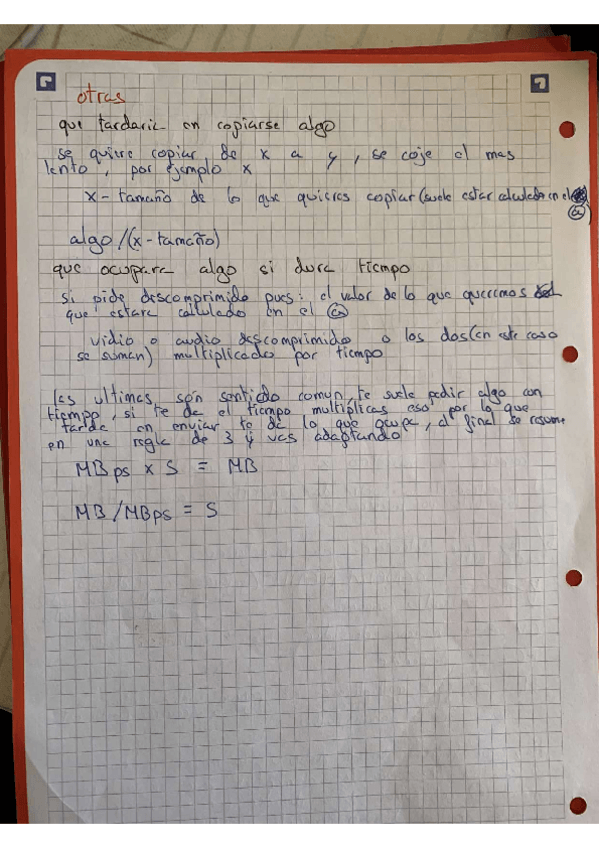 otras
que tardaria en copiarse algo
se quiere copiar de x a y, se coje el mas
lento, por ejemplo x
x - tamaño de lo que quieres copiar (suele estar calculado en el
a)
algo/(x-tamaño)
que ocupara algo si dura tiempo
si pide descomprimido pues: el valor de lo que queremos
que estara calculado en el a
vidio o audio descomprimido o los dos (en este caso
se suman) multiplicado por tiempo
las ultimas son sentido comun, te suele pedir algo con
tiempo, si te da el tiempo multiplicas eso por lo que
tarde en enviar te da lo que ocupa, al final se resume
en una regla de 3 y vas adaptando
MBps x S = MB
MB/MBps = S